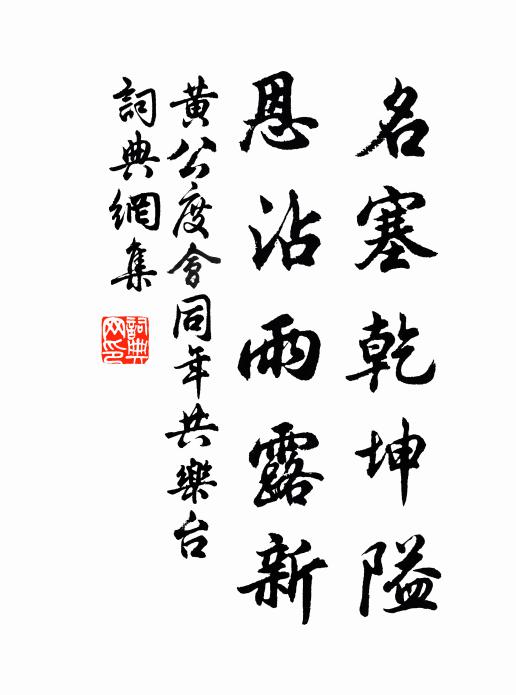 名塞乾坤隘
恩沾雨露新
黃公度會同年共樂台
詞典網集
詞典網印